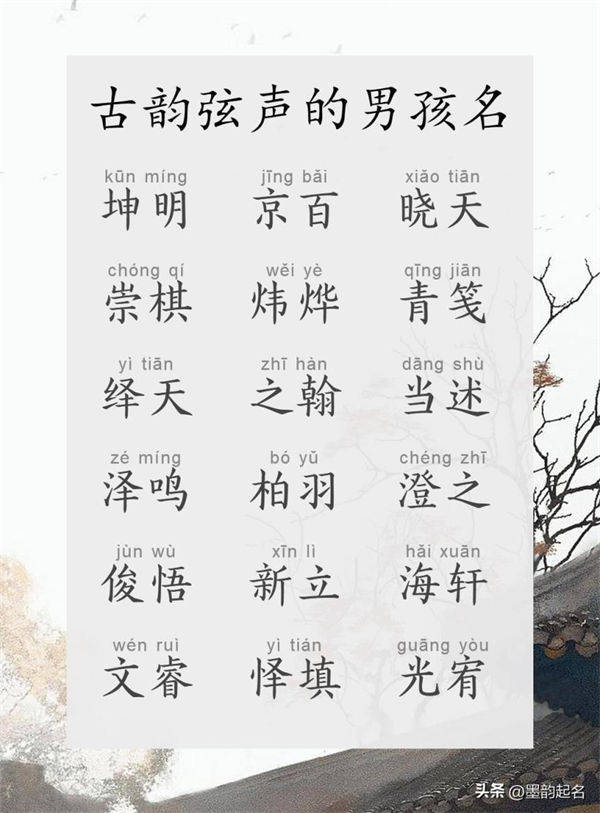 古韵弦声的男孩名
kūn míng jīng bǎi xiǎo tiān
坤明 京百 晓天
chóng qí wěi yè qīng jiān
崇棋 炜烨 青笺
yì tiān zhī hàn dāng shù
绎天 之翰 当述
zé míng bó yǔ chéng zhī
泽鸣 柏羽 澄之
jùn wù xīn lì hǎi xuān
俊悟 新立 海轩
wén ruì yì tián guāng yòu
文睿 怿填 光宥
头条 @墨韵起名